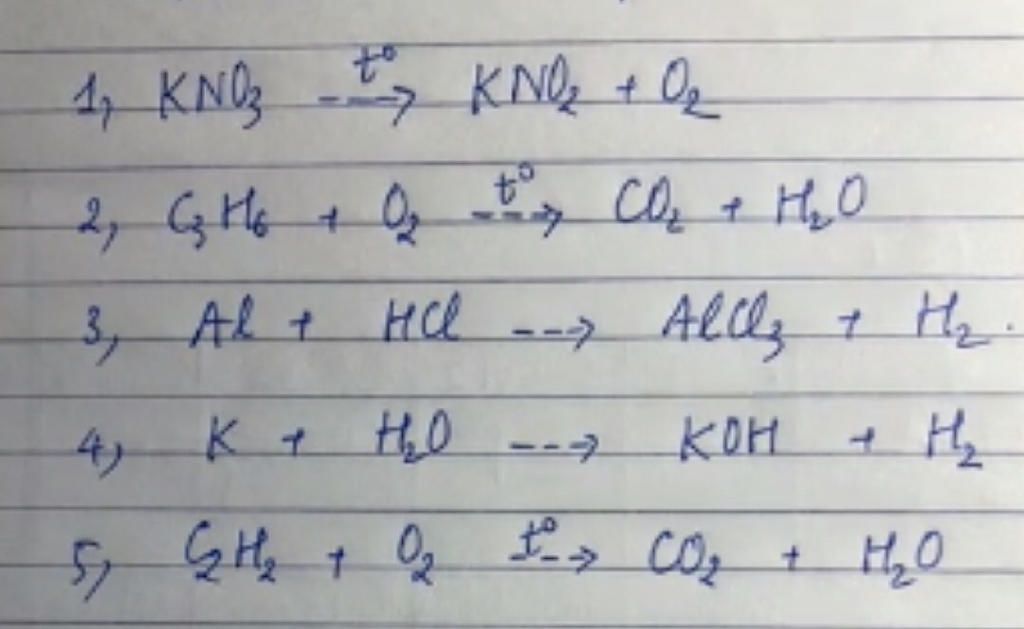 1, KNO₃ --t°--> KNO₂ + O₂
2, C₃H₆ + O₂ --t°--> CO₂ + H₂O
3, Al + HCl ---> AlCl₃ + H₂.
4, K + H₂O ---> KOH + H₂
5, C₂H₂ + O₂ --t°--> CO₂ + H₂O